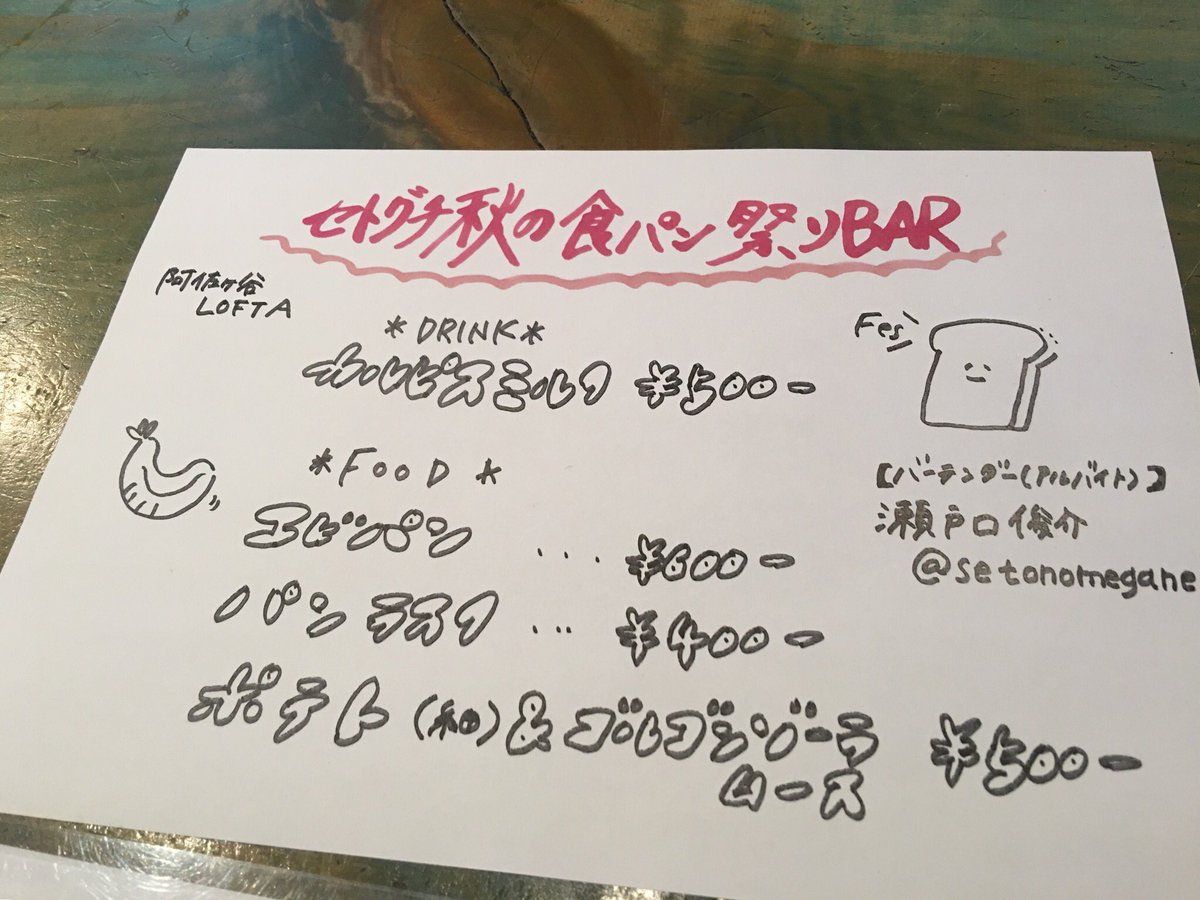 セトグチ秋の食パン祭りBAR
阿佐ヶ谷
LOFTA
*DRINK*
カルピスミルク ¥500-
Fes
*FOOD*
エビンパン ... ¥600-
パンラスク ... ¥400-
ポテト(細)&ゴルゴンゾーラ
ムース ¥500-
【バーテンダー(アルバイト)】
瀬戸口俊介
@setonomegane